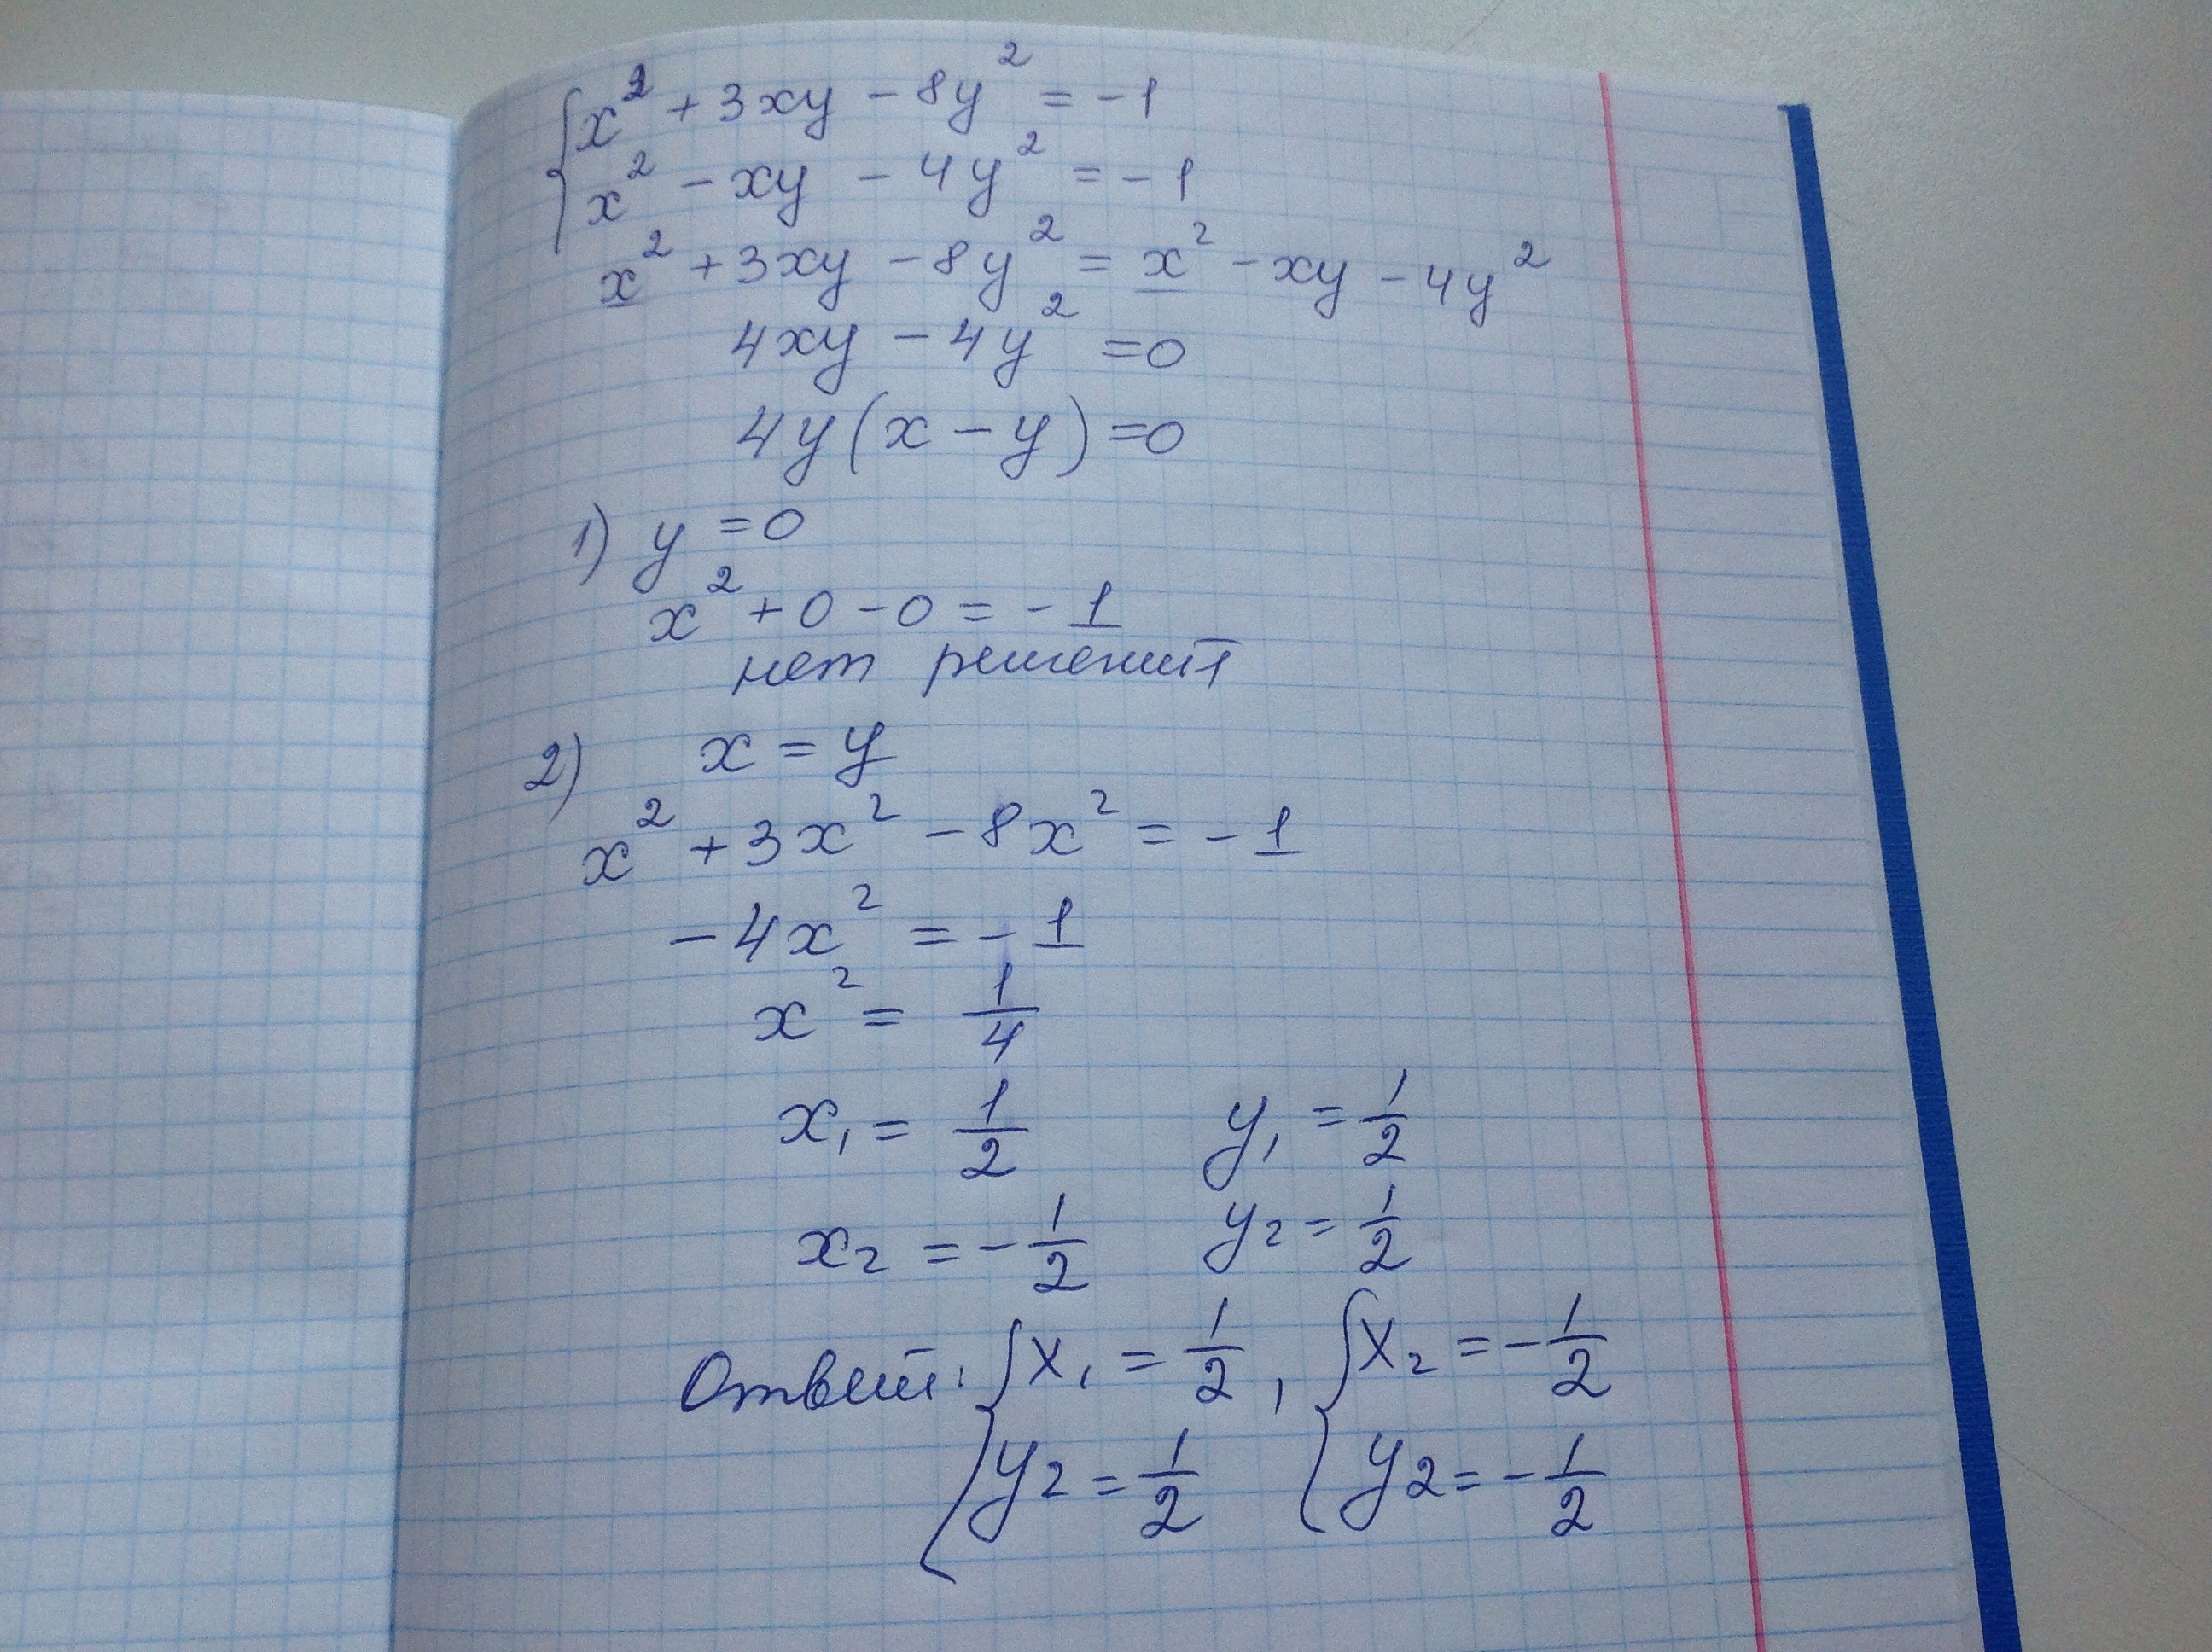 {x² + 3xy - 8y² = -1
x² - xy - 4y² = -1
x² + 3xy - 8y² = x² - xy - 4y²
4xy - 4y² = 0
4y(x - y) = 0
1) y = 0
x² + 0 - 0 = -1
нет решений
2) x = y
x² + 3x² - 8x² = -1
-4x² = -1
x² = 1/4
x₁ = 1/2 y₁ = 1/2
x₂ = -1/2 y₂ = 1/2
Ответ: {x₁ = 1/2, {x₂ = -1/2
y₂ = 1/2 y₂ = -1/2